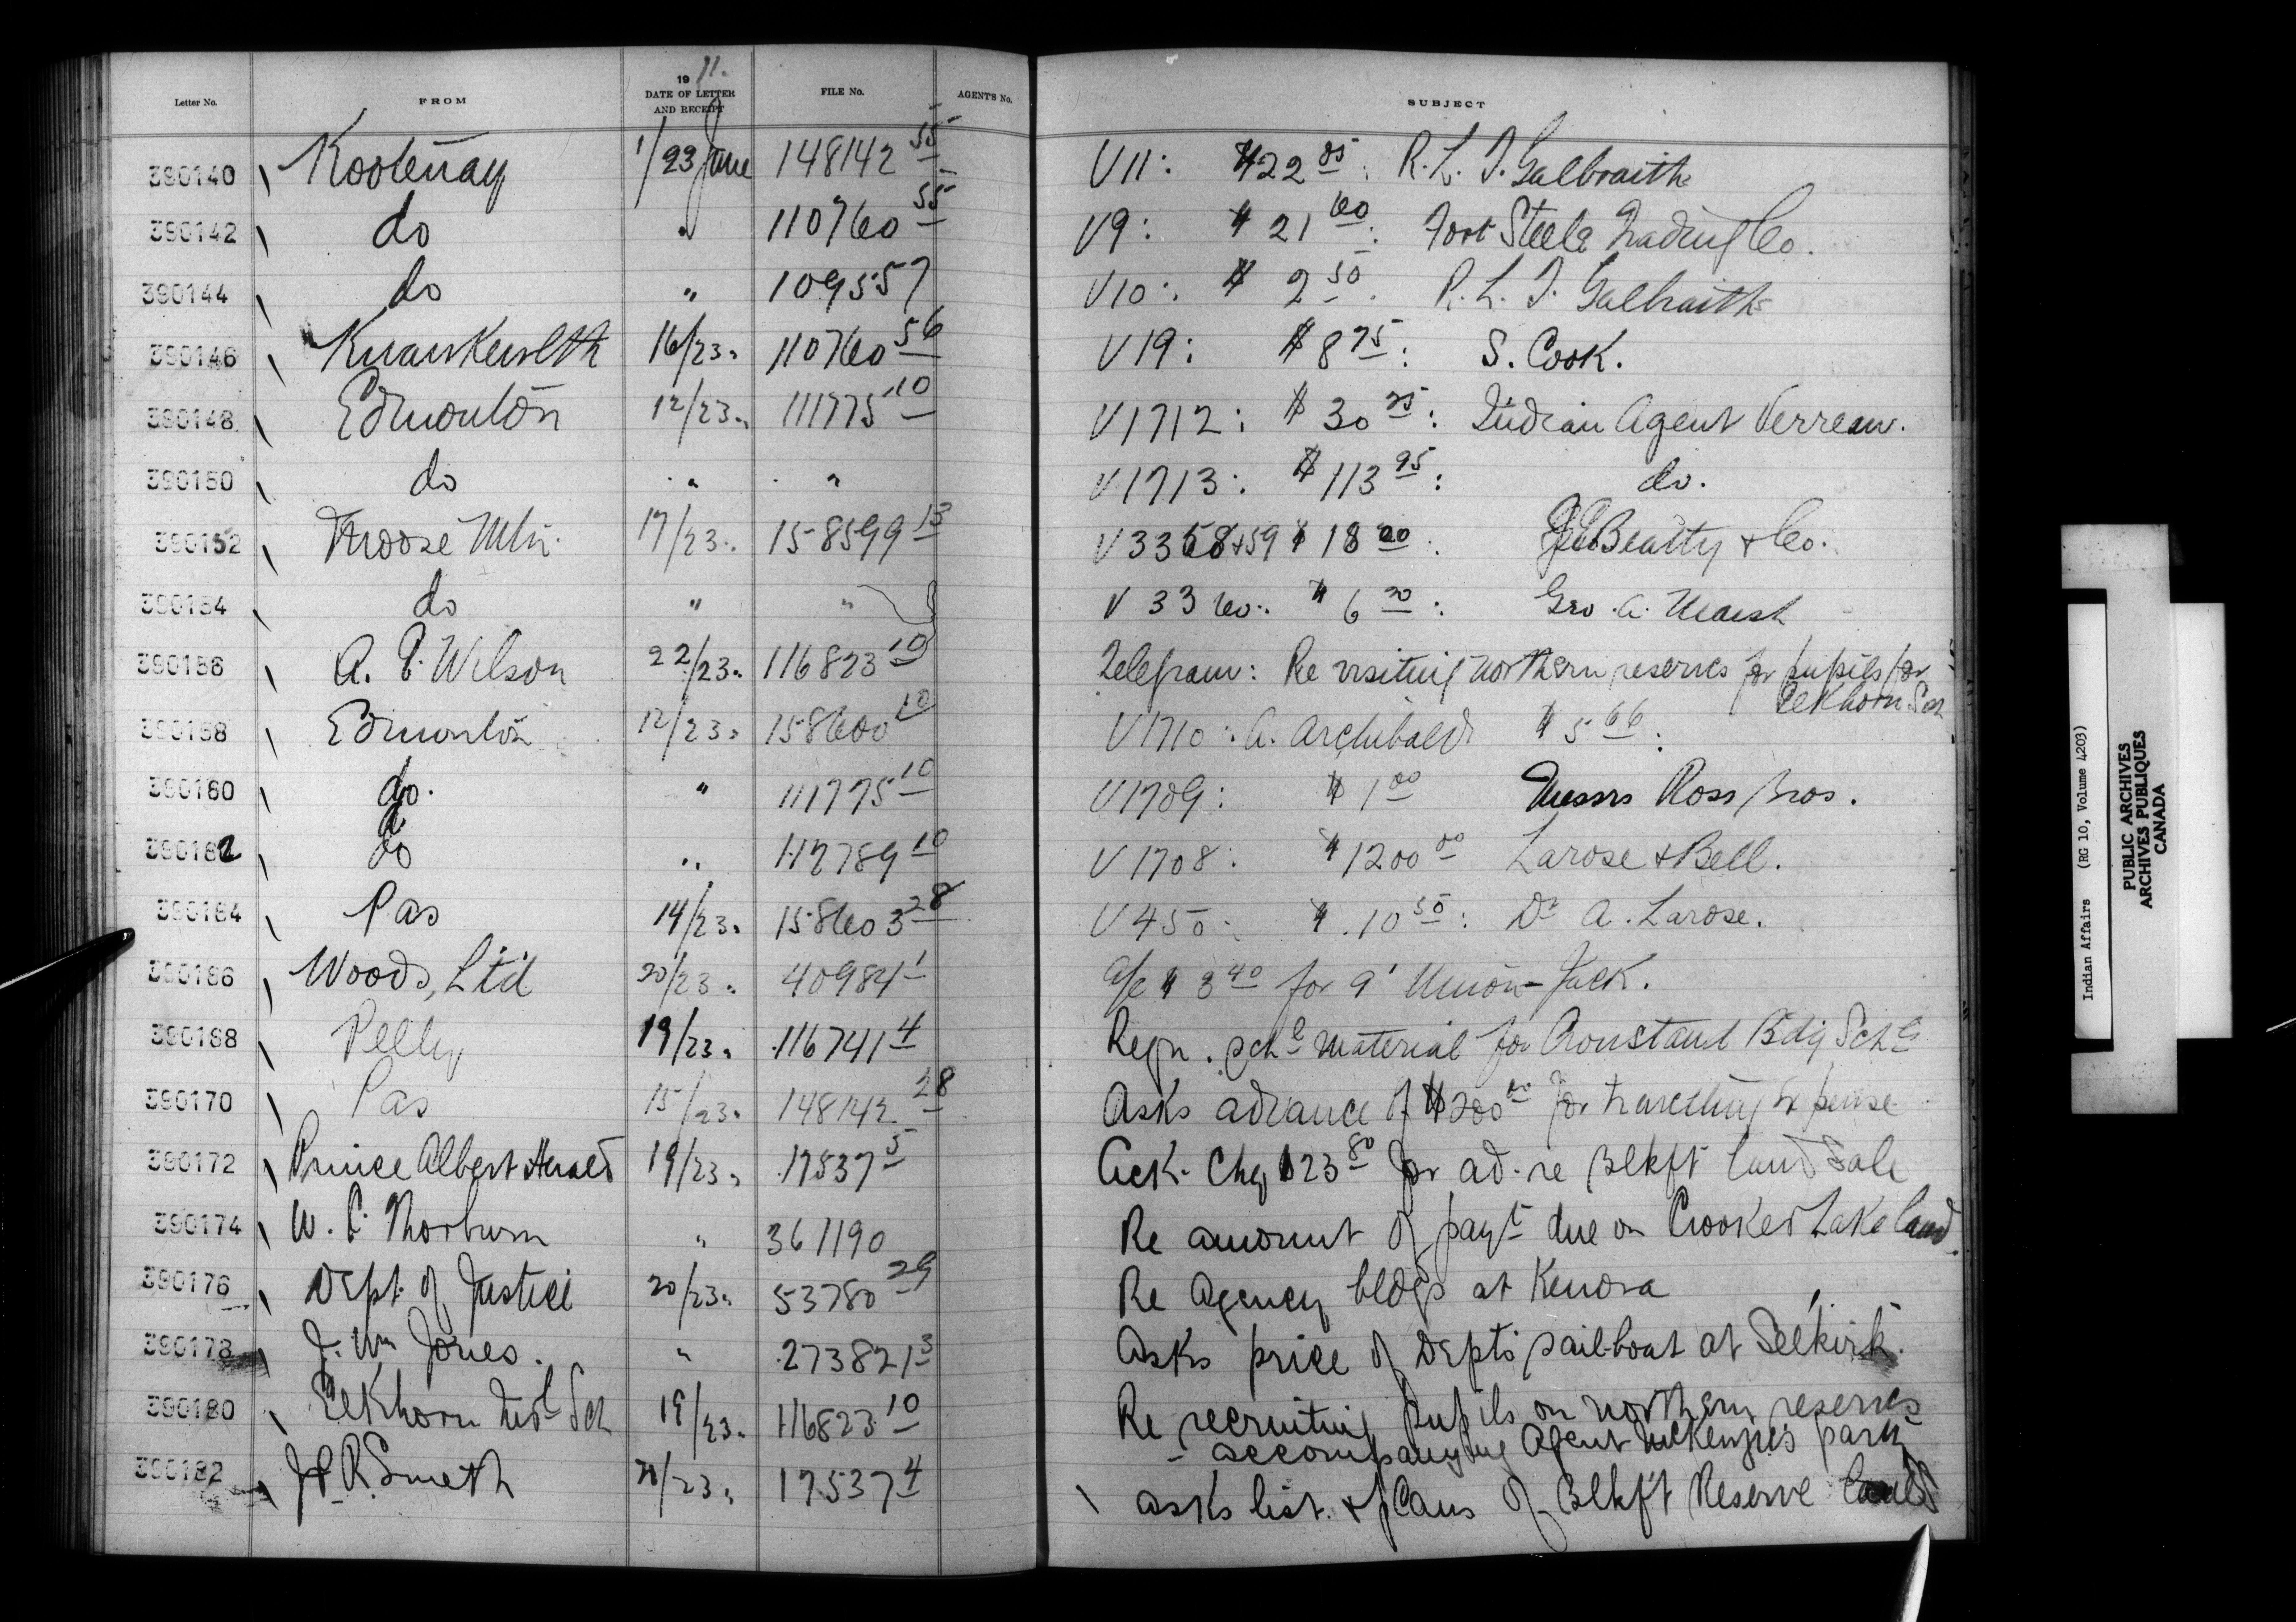 Letter No. FROM 1911. DATE OF LETTER AND RECEIPT FILE No. AGENT'S No. SUBJECT
390140 Kootenay 1/23 June 148142 55 V11: $22 05: R. L. T. Galbraith
390142 do " 110760 55 V9: $21 60: Fort Steele Trading Co.
390144 do " 109557 V10: $2 50. R. L. T. Galbraith
390146 Kwawkewlth 16/23 " 110760 56 V19: $8 75: S. Cook.
390148 Edmonton 12/23 " 111775 10 V1712: $30 25: Indian Agent Verreau.
390150 do " " V1713: $113 95: do.
390152 Moose Mtn. 17/23 " 158599 13 V3358+59 $18 00: Beatty & Co.
390154 do " " V3360: $6 20: Geo. A. Marsh
390156 A. E. Wilson 22/23 " 116823 10 Telegram: Re visiting northern reserves for pupils for
Elkhorn Sch
390158 Edmonton 12/23 " 158600 10 V1710: A. Archibald $5 66:
390160 do. " 111775 10 V1709: $1 00 Messrs Ross Bros.
390162 do " 112789 10 V1708: $1200 00 Larose & Bell.
390164 Pas 14/23 " 158603 28 V450: $10 50: Dr A. Larose.
390166 Woods, Ltd 20/23 " 40984 1 a/c $3 40 for 9' Union Jack.
390168 Pelly 19/23 " 116741 4 Reqn. schl material for Crowstand Bdg Schl
390170 Pas 15/23 " 148142 28 Asks advance of $200 00 for travelling expense
390172 Prince Albert Herald 19/23 " 17537 5 Ack. Chq $23 80 for ad. re Blkft land Sale
390174 W. C. Thorburn " 361190 Re amount of payt due on Crooked Lake land.
390176 Dept. of Justice 20/23 " 53780 29 Re Agency bldgs at Kenora
390178 J. Wm Jones. " 273821 3 Asks price of Dept's sail-boat at Selkirk.
390180 Elkhorn Indl Sch 19/23 " 116823 10 Re recruiting pupils on northern reserves
- accompanying Agent McKenzie's party
390182 R. Smeth 20/23 " 17537 4 asks list & plans of Blkf't Reserve lands
Indian Affairs (RG 10, Volume 4203)
PUBLIC ARCHIVES
ARCHIVES PUBLIQUES
CANADA